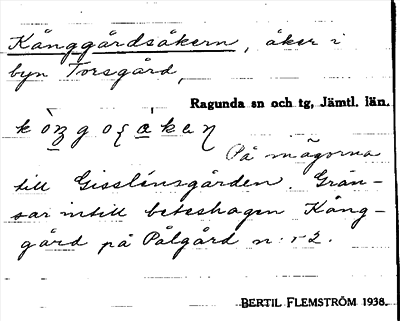 Kånggårdsåkern, åker i
byn Torsgård,
Ragunda sn och tg, Jämtl. län.
På mågorna
till Gisslénsgården. Grän-
sar intill beteshagen Kång-
gård på Pålgård n:r 2.
BERTIL FLEMSTRÖM 1938.